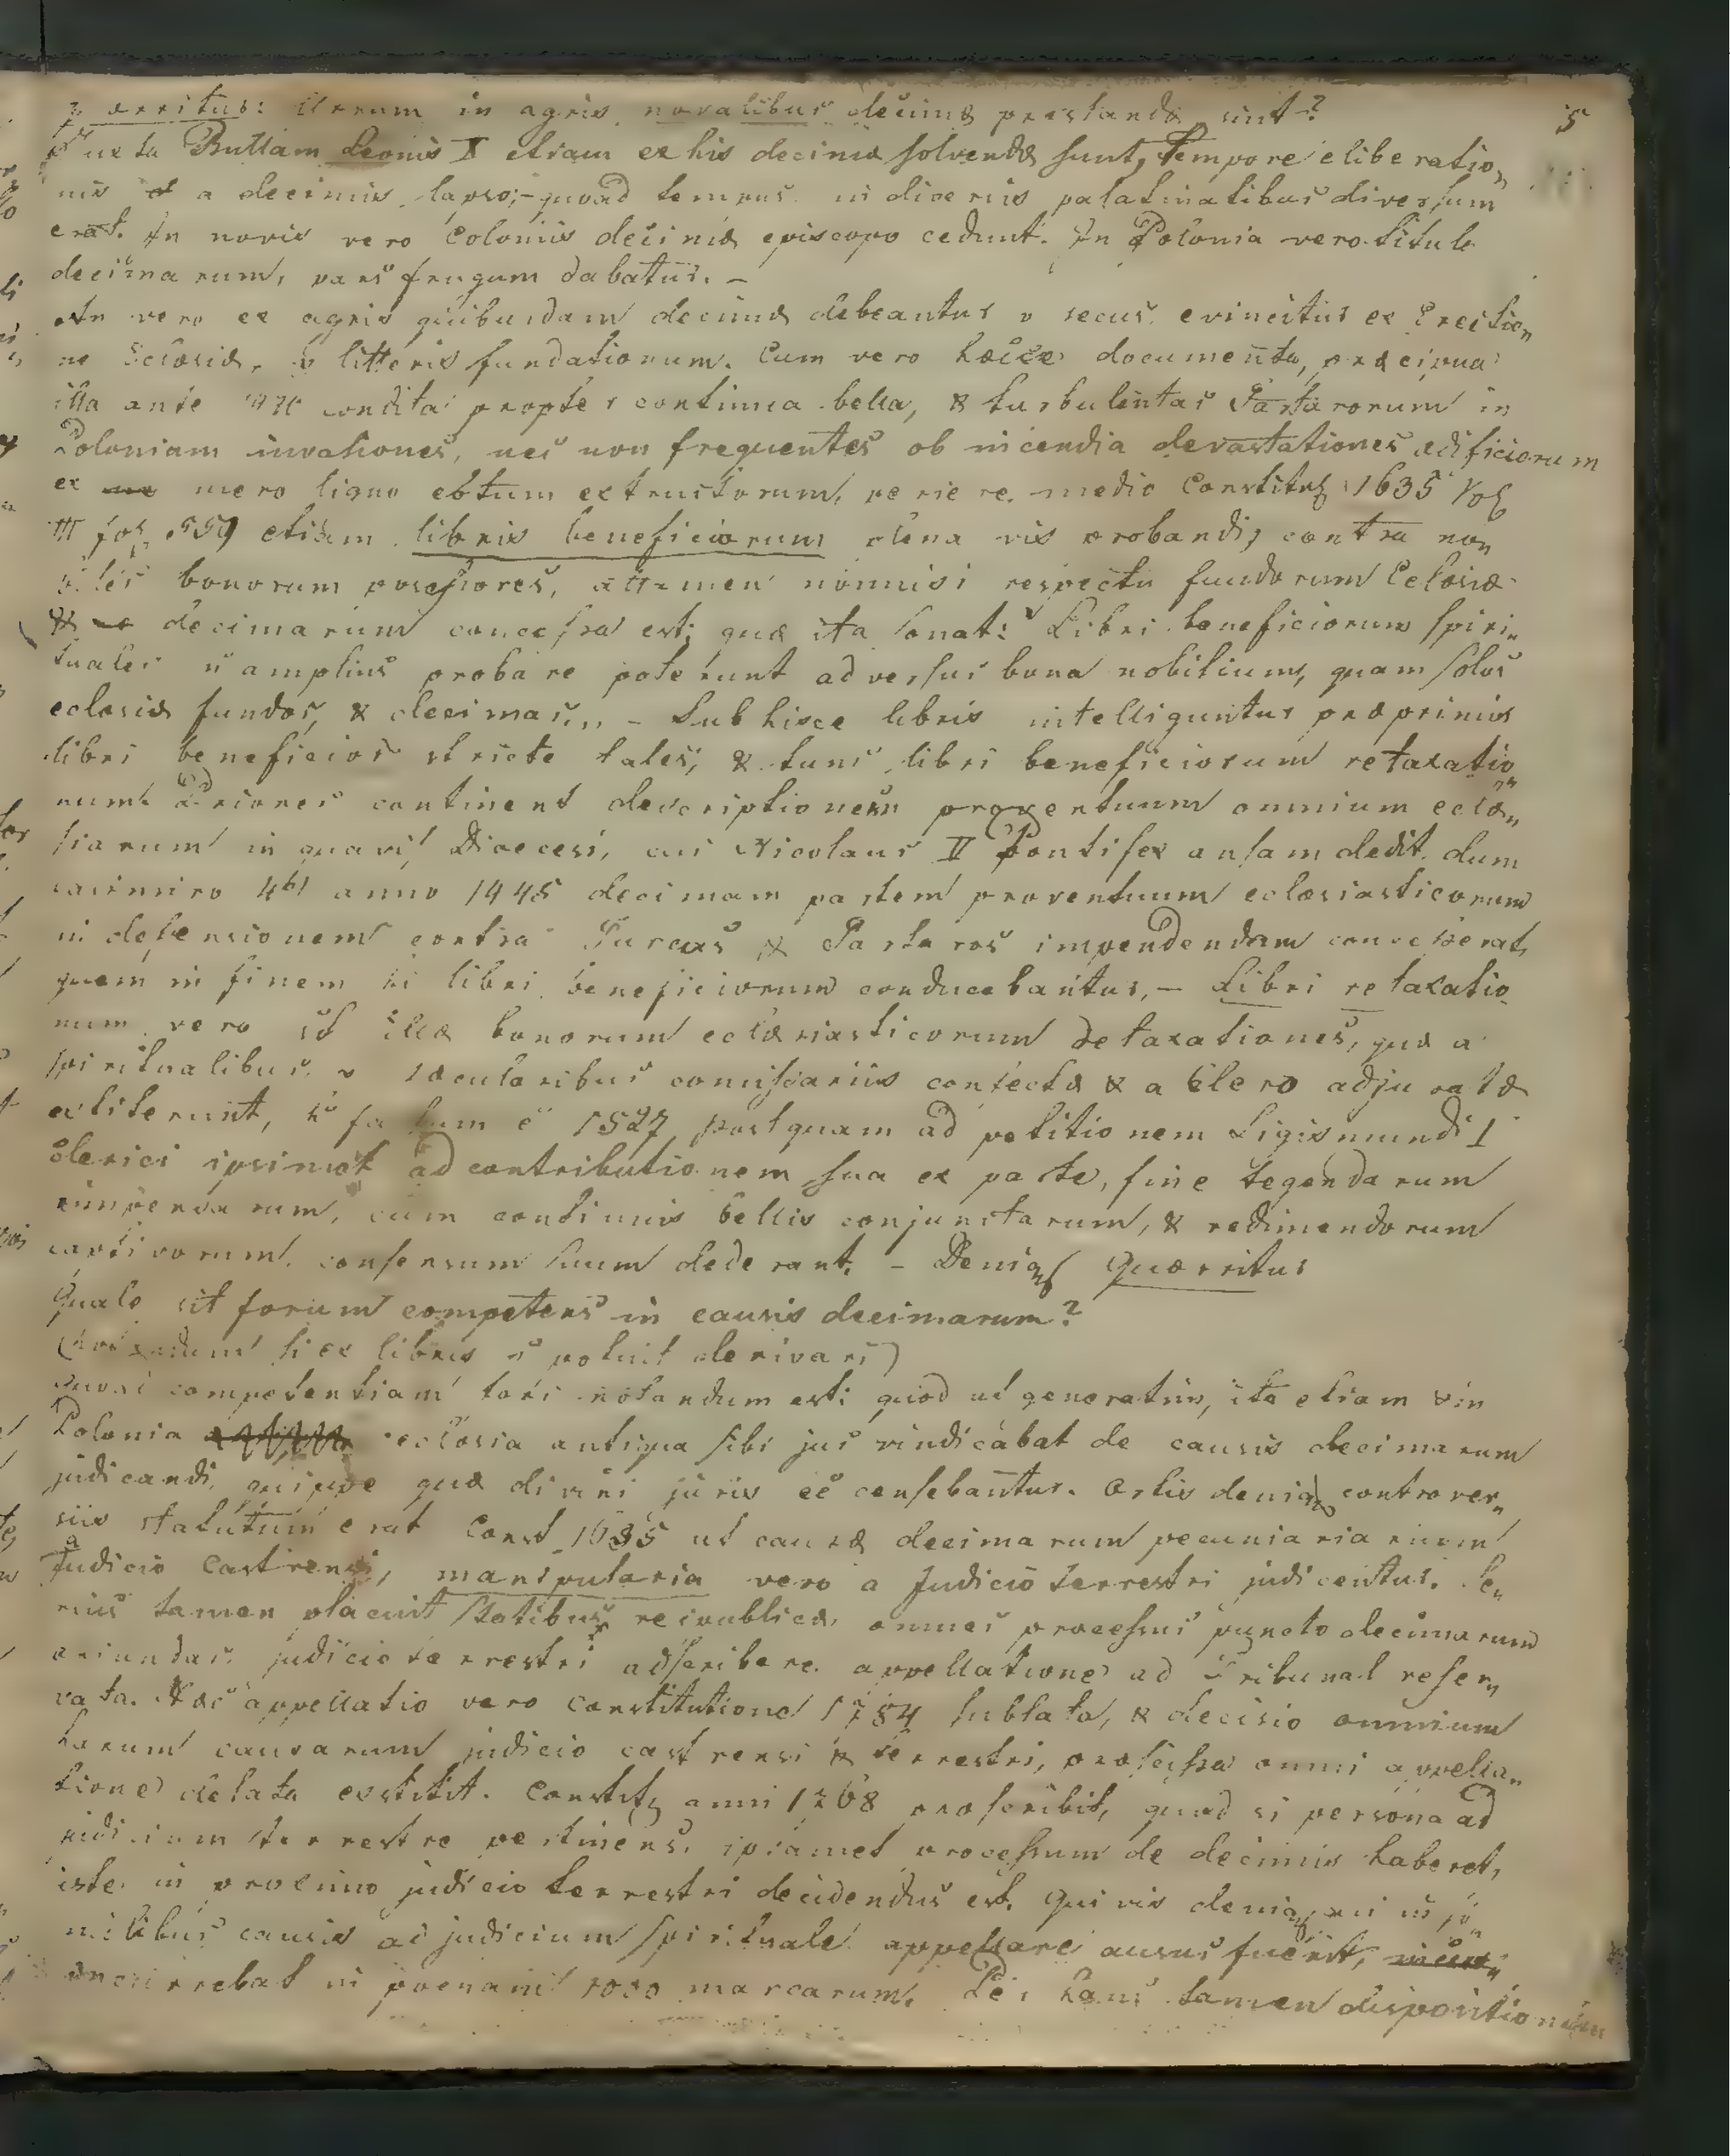 5
Quæritus: Utrum in agris novalibus decimæ præstandæ sint?
Juxta Bullam Leonis X etiam ex his decimæ solvendæ sunt, tempore eliberatio„
nis a decimis lapso; – quoad tempus in diversis palatinatibus diversum
erat. In novis vero Coloniis decimæ episcopo cedunt. In Polonia vero titulo
decimarum, pars frugum dabatur. –
An vero ex agris quibusdam decimæ debeantur v secus, evincitur ex Erectio„
ne Eclesiæ, v litteris fundationum. Cum vero hæcce documenta, præcipua
illa ante condita propter continua bella, & turbulentas Tartarorum in
Poloniam invasiones, nec non frequentes ob incendia devastationes ædificiorum
ex mero ligno extructorum, periere, medio Constitut 1635 Vol
III fol. 559 etiam libris beneficiorum plena vis probandi, contra no„
biles bonorum possessores, attamen nonnisi respectu fundorum Eclesiæ
& decimarum concessa est; quæ ita sonat: Libri beneficiorum spiri„
tuales n amplius probare poterunt adversus bona nobilium, quam solos
eclesiæ fundos, & decimas„ – Sub hisce libris intelliguntur præprimis
libri beneficior stricte tales, & tunc libri beneficiorum retaxatio„
num. Priores continent descriptionem proventuum omnium eclæ„
siarum in quavis Diœcesi, cui Nicolaus V Pontifex ansam dedit, dum
Casimiro 4to anno 1445 decimam partem proventuum eclæsiasticorum
in defensionem contra Turcas & Tartaros impendendam concesserat,
quem in finem hi libri beneficiorum conducebantur, – Libri retaxatio
num vero st illæ bonorum eclæsiasticorum detaxationes, quæ a
spiritualibus v sæcularibus comissariis confectæ & a Clero adjuratæ
extiterunt, factum e 1527 postquam ad petitionem Sigismundi I
Clerici ipsimet ad contributionem sua ex parte, fine tegendarum
impensarum, cum continuis bellis conjunctarum, & redimendorum
captivorum, consensum suum dederant. – Deniq Quæritus
Quale sit forum competens in causis decimarum?
si ex libris n potuit derivari)
Quoad competentiam fori notandum est: quod ut generatim, ita etiam & in
Polonia eclesia antiqua sibi jus vindicabat de causis decimarum
judicandi, quippe quæ divini juris ee censebantur. Ortis deniq controver„
siis statutum erat Const 1635 ut causæ decimarum pecuniariarum
a Judicio Castrensi, manipularia vero a Judicio terrestri judicentur. Se„
rius tamen placuit Statibus reipublicæ, omnes processus puncto decimarum
oriundas, judicio terrestri adscribere, appellatione ad Tribunal reser„
vata. Hæc appellatio vero Constitutione 1784 sublata, & decisio omnium
harum causarum judicio castrensi & terrestri, præscissa omni appella„
tione delata exstitit. Constit anni 1768 præscribit, quod si persona ad
judicium terrestre pertinens, ipsamet processum de decimis haberet,
iste in proximo judicio terrestri decidendus est. Quivis deniq, qui in si„
milibus causis ad judicium spirituale appellare ausus fuerit,
incurrebat in poenam 1000 marcarum. Per hanc tamen dispositionem